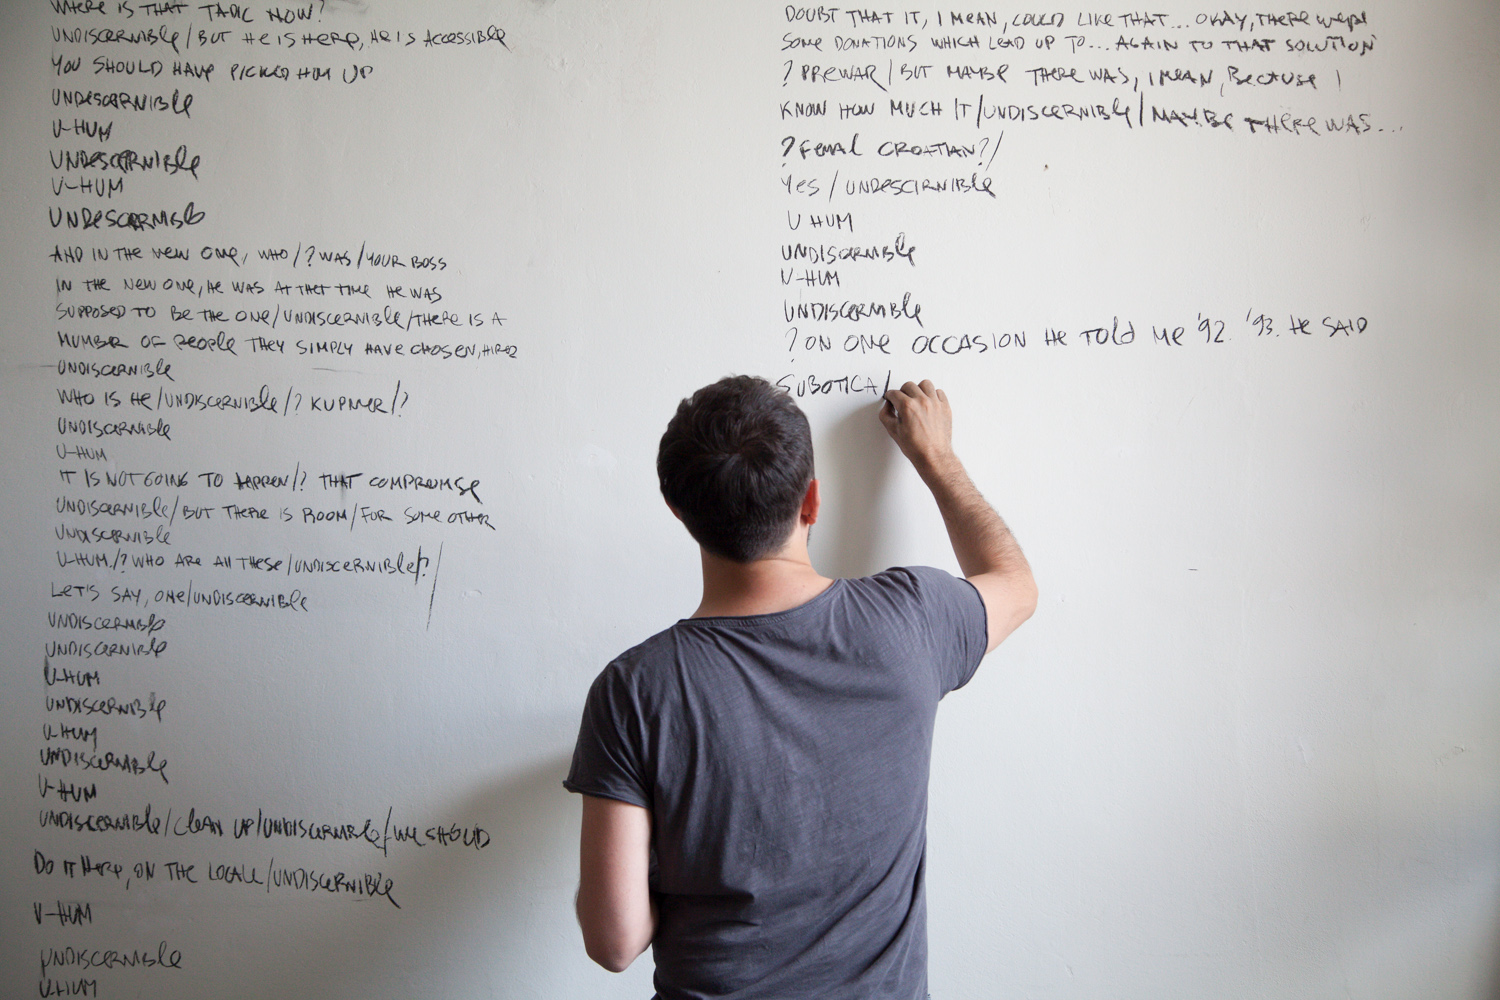 WHERE IS THAT TADIC NOW?
UNDISCERNIBLE/BUT HE IS HERE, HE IS ACCESSIBLE
YOU SHOULD HAVE PICKED HIM UP
UNDISCERNIBLE
U-HUM
UNDESCERNIBLE
U-HUM
UNDESCERNIBLE
AND IN THE NEW ONE, WHO/?WAS/YOUR BOSS
IN THE NEW ONE, HE WAS AT THET TIME HE WAS
SUPPOSED TO BE THE ONE/UNDISCERNIBLE/THERE IS A
NUMBER OF PEOPLE THEY SIMPLY HAVE CHOSEN, HIRED
UNDISCERNIBLE
WHO IS HE/UNDISCERNIBLE/? KUPNER/?
UNDISCERNIBLE
U-HUM
IT IS NOT GOING TO HAPPEN/? THAT COMPROMISE
UNDISCERNIBLE/BUT THERE IS ROOM/FOR SOME OTHER
UNDISCERNIBLE
U-HUM./?WHO ARE ALL THESE/UNDISCERNIBLE/?/
LET'S SAY, ONE/UNDISCERNIBLE
UNDISCERNIBLE
UNDISCERNIBLE
U-HUM
UNDISCERNIBLE
U-HUM
UNDISCERNIBLE
U-HUM
UNDISCERNIBLE/CLEAN UP/UNDISCERNIBLE/WE SHOULD
DO IT HERE, ON THE LOCALE/UNDISCERNIBLE
U-HUM
UNDISCERNIBLE
U-HUM
DOUBT THAT IT, I MEAN, COULD LIKE THAT... OKAY, THERE WERE
SOME DONATIONS WHICH LEAD UP TO... AGAIN TO THAT SOLUTION
? PREWAR/BUT MAYBE THERE WAS, I MEAN, BECAUSE I
KNOW HOW MUCH IT/UNDISCERNIBLE/MAYBE THERE WAS...
?FEMAL CROATIAN?/
YES/UNDESCIRNIBLE
U HUM
UNDISCERNIBLE
U-HUM
UNDISCERNIBLE
?ON ONE OCCASION HE TOLD ME '92. '93. HE SAID
SUBOTICA/